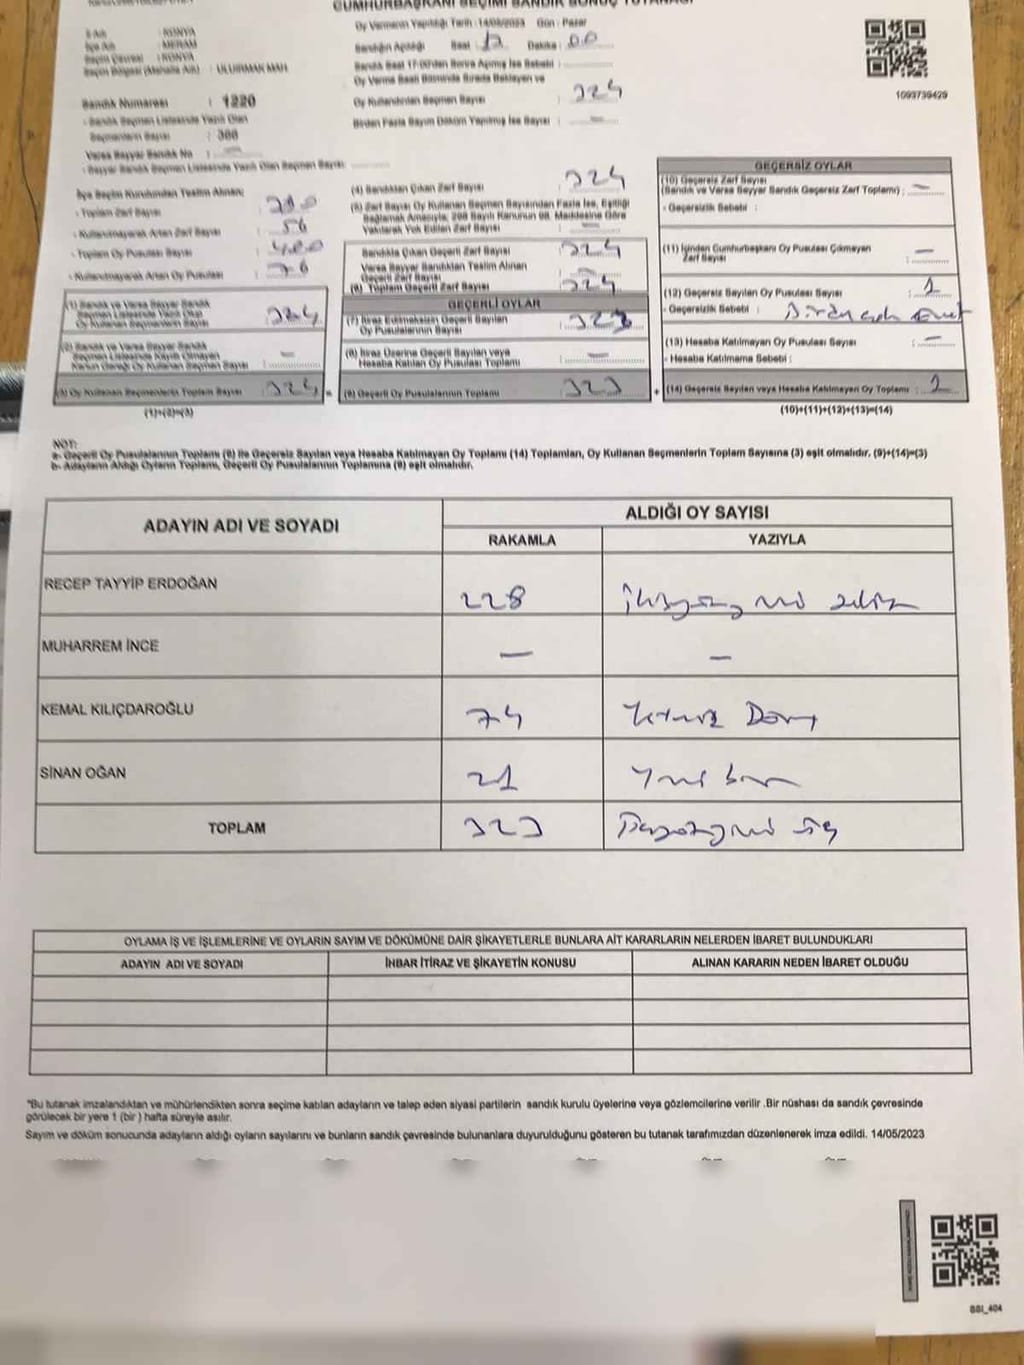 CUMHURBAŞKANI SEÇİMİ SANDIK SONUÇ TUTANAĞI
İli Adı : KONYA
İlçe Adı : MERAM
Seçim Çevresi : KONYA
Seçim Bölgesi (Mahalle Adı) : ULUIRMAK MAH
Sandık Numarası : 1220
- Sandık Seçmen Listesinde Yazılı Olan
Seçmenlerin Sayısı : 366
Varsa Seyyar Sandık No : —
- Seyyar Sandık Seçmen Listesinde Yazılı Olan Seçmen Sayısı:
Oy Vermenin Yapıldığı Tarih : 14/05/2023 Gün : Pazar
Sandığın Açıldığı Saat : 17 Dakika : 00
Sandık Saat 17:00'den Sonra Açılmış İse Sebebi :
Oy Verme Saati Bitiminde Sırada Bekleyen ve
Oy Kullandırılan Seçmen Sayısı : 324
Birden Fazla Sayım Döküm Yapılmış İse Sayısı : —
1093739429
İlçe Seçim Kurulundan Teslim Alınan;
- Toplam Zarf Sayısı :
- Kullanılmayarak Artan Zarf Sayısı : 56
- Toplam Oy Pusulası Sayısı : 400
- Kullanılmayarak Artan Oy Pusulası : 76
(1) Sandık ve Varsa Seyyar Sandık
Seçmen Listesinde Yazılı Olup
Oy Kullanan Seçmenlerin Sayısı : 324
(2) Sandık ve Varsa Seyyar Sandık
Seçmen Listesinde Kaydı Olmayan
Kanun Gereği Oy Kullanan Seçmen Sayısı : —
(3) Oy Kullanan Seçmenlerin Toplam Sayısı : 324 =
(1)+(2)=(3)
(4) Sandıktan Çıkan Zarf Sayısı : 324
(5) Zarf Sayısı Oy Kullanan Seçmen Sayısından Fazla İse, Eşitliği
Sağlamak Amacıyla; 298 Sayılı Kanunun 98. Maddesine Göre
Yakılarak Yok Edilen Zarf Sayısı : —
Sandıkta Çıkan Geçerli Zarf Sayısı : 324
Varsa Seyyar Sandıktan Teslim Alınan
Geçerli Zarf Sayısı : —
(6) Toplam Geçerli Zarf Sayısı : 324
GEÇERLİ OYLAR
(7) İtiraz Edilmeksizin Geçerli Sayılan
Oy Pusulalarının Sayısı : 323
(8) İtiraz Üzerine Geçerli Sayılan veya
Hesaba Katılan Oy Pusulası Toplamı : —
(9) Geçerli Oy Pusulalarının Toplamı : 323 +
GEÇERSİZ OYLAR
(10) Geçersiz Zarf Sayısı
(Sandık ve Varsa Seyyar Sandık Geçersiz Zarf Toplamı) : —
- Geçersizlik Sebebi :
(11) İçinden Cumhurbaşkanı Oy Pusulası Çıkmayan
Zarf Sayısı : —
(12) Geçersiz Sayılan Oy Pusulası Sayısı : 1
- Geçersizlik Sebebi :
(13) Hesaba Katılmayan Oy Pusulası Sayısı : —
- Hesaba Katılmama Sebebi :
(14) Geçersiz Sayılan veya Hesaba Katılmayan Oy Toplamı : 1
(10)+(11)+(12)+(13)=(14)
NOT:
a- Geçerli Oy Pusulalarının Toplamı (9) ile Geçersiz Sayılan veya Hesaba Katılmayan Oy Toplamı (14) Toplamları, Oy Kullanan Seçmenlerin Toplam Sayısına (3) eşit olmalıdır. (9)+(14)=(3)
b- Adayların Aldığı Oyların Toplamı, Geçerli Oy Pusulalarının Toplamına (9) eşit olmalıdır.
ADAYIN ADI VE SOYADI
ALDIĞI OY SAYISI
RAKAMLA YAZIYLA
RECEP TAYYİP ERDOĞAN 228 ikiyüzyirmi sekiz
MUHARREM İNCE — —
KEMAL KILIÇDAROĞLU 74 Yetmiş Dört
SİNAN OĞAN 21 Yirmi bir
TOPLAM 323 Üçyüzyirmi üç
OYLAMA İŞ VE İŞLEMLERİNE VE OYLARIN SAYIM VE DÖKÜMÜNE DAİR ŞİKAYETLERLE BUNLARA AİT KARARLARIN NELERDEN İBARET BULUNDUKLARI
ADAYIN ADI VE SOYADI İHBAR İTİRAZ VE ŞİKAYETİN KONUSU ALINAN KARARIN NEDEN İBARET OLDUĞU
*Bu tutanak imzalandıktan ve mühürlendikten sonra seçime katılan adayların ve talep eden siyasi partilerin sandık kurulu üyelerine veya gözlemcilerine verilir .Bir nüshası da sandık çevresinde
görülecek bir yere 1 (bir ) hafta süreyle asılır.
Sayım ve döküm sonucunda adayların aldığı oyların sayılarını ve bunların sandık çevresinde bulunanlara duyurulduğunu gösteren bu tutanak tarafımızdan düzenlenerek imza edildi. 14/05/2023
BSI_404